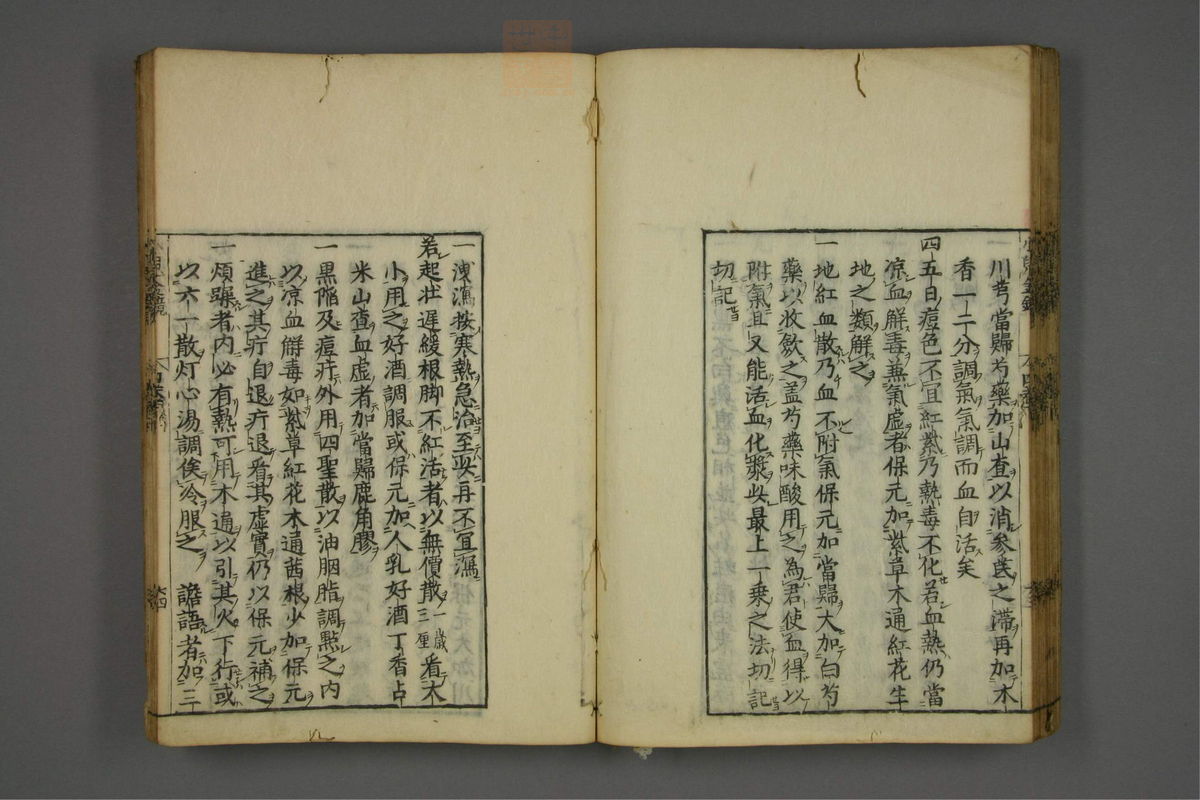 一川芎當歸芍藥加山查以消參芪之滯再加木
香一二分調氣氣調而血自活矣
四五日痘色不宜紅紫乃熱毒不化若血熱仍當
凉血解毒兼氣虛者保元加紫草木通紅花生
地之類解之
一地紅血散乃血不附氣保元加當歸大加白芍
藥以收斂之盖芍藥味酸用之為君使血得以
附氣且又能活血化漿此最上一乗之法切記
切記
一洩瀉按寒熱急治至此再不宜瀉
若起壮遅緩根脚不紅活者以無價散一歲三厘看大
小用之好酒調服或保元加人乳好酒丁香占
米山查血虛者加當歸鹿角膠
一黒陥及痘疔外用四聖散以油胭脂調點之内
以凉血觧毒如紫草紅花木通茜根少加保元
進之其疔自退疔退看其虛實仍以保元補之
一煩躁者内必有熱可用木通以引其火下行或
以六一散灯心湯調俟冷服之 譫語者加三